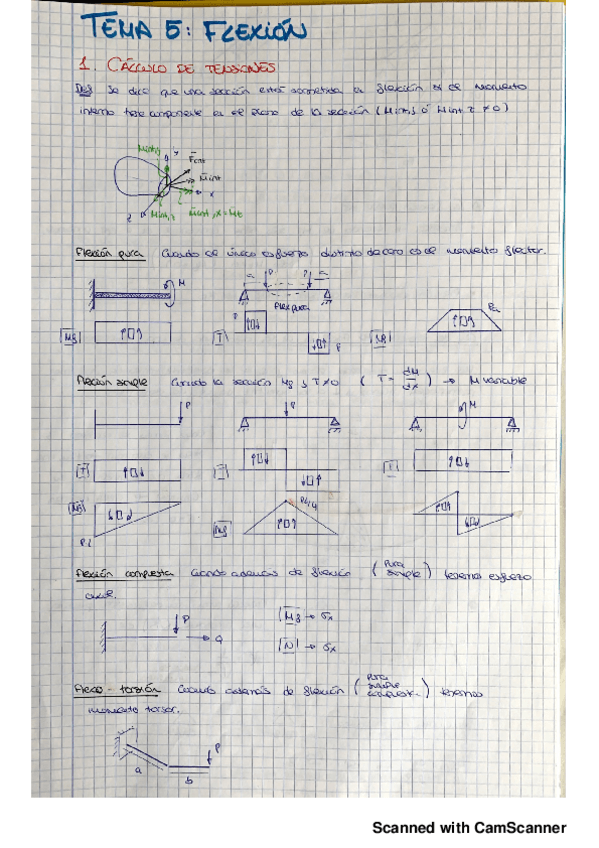 TEMA 5: FLEXIÓN
1. CÁLCULO DE TENSIONES
Def Se dice que una sección está sometida a flexión si el momento
interno tiene componente en el plano de la sección (Mint,y ó Mint z ≠ 0)
Mint,y
y
Fint
Mint
x
z
Mint,z
Mint,x = Mt
Flexión pura Cuando el único esfuerzo distinto de cero es el momento flector.
M
a P P a
Flex pura
Mf
T P P
Mf Pa
Flexión simple Cuando la sección Mf y T ≠ 0 ( T = dM/dx ) → M variable
P P M
T T T
Mf P·L
Mf PL/4
Flexión compuesta Cuando además de flexión (pura simple) tenemos esfuerzo
axil.
P
Q
Mf → σx
N → σx
Flexo-torsión Cuando además de flexión (pura simple compuest.) tenemos
momento torsor.
P
a
b
Scanned with CamScanner